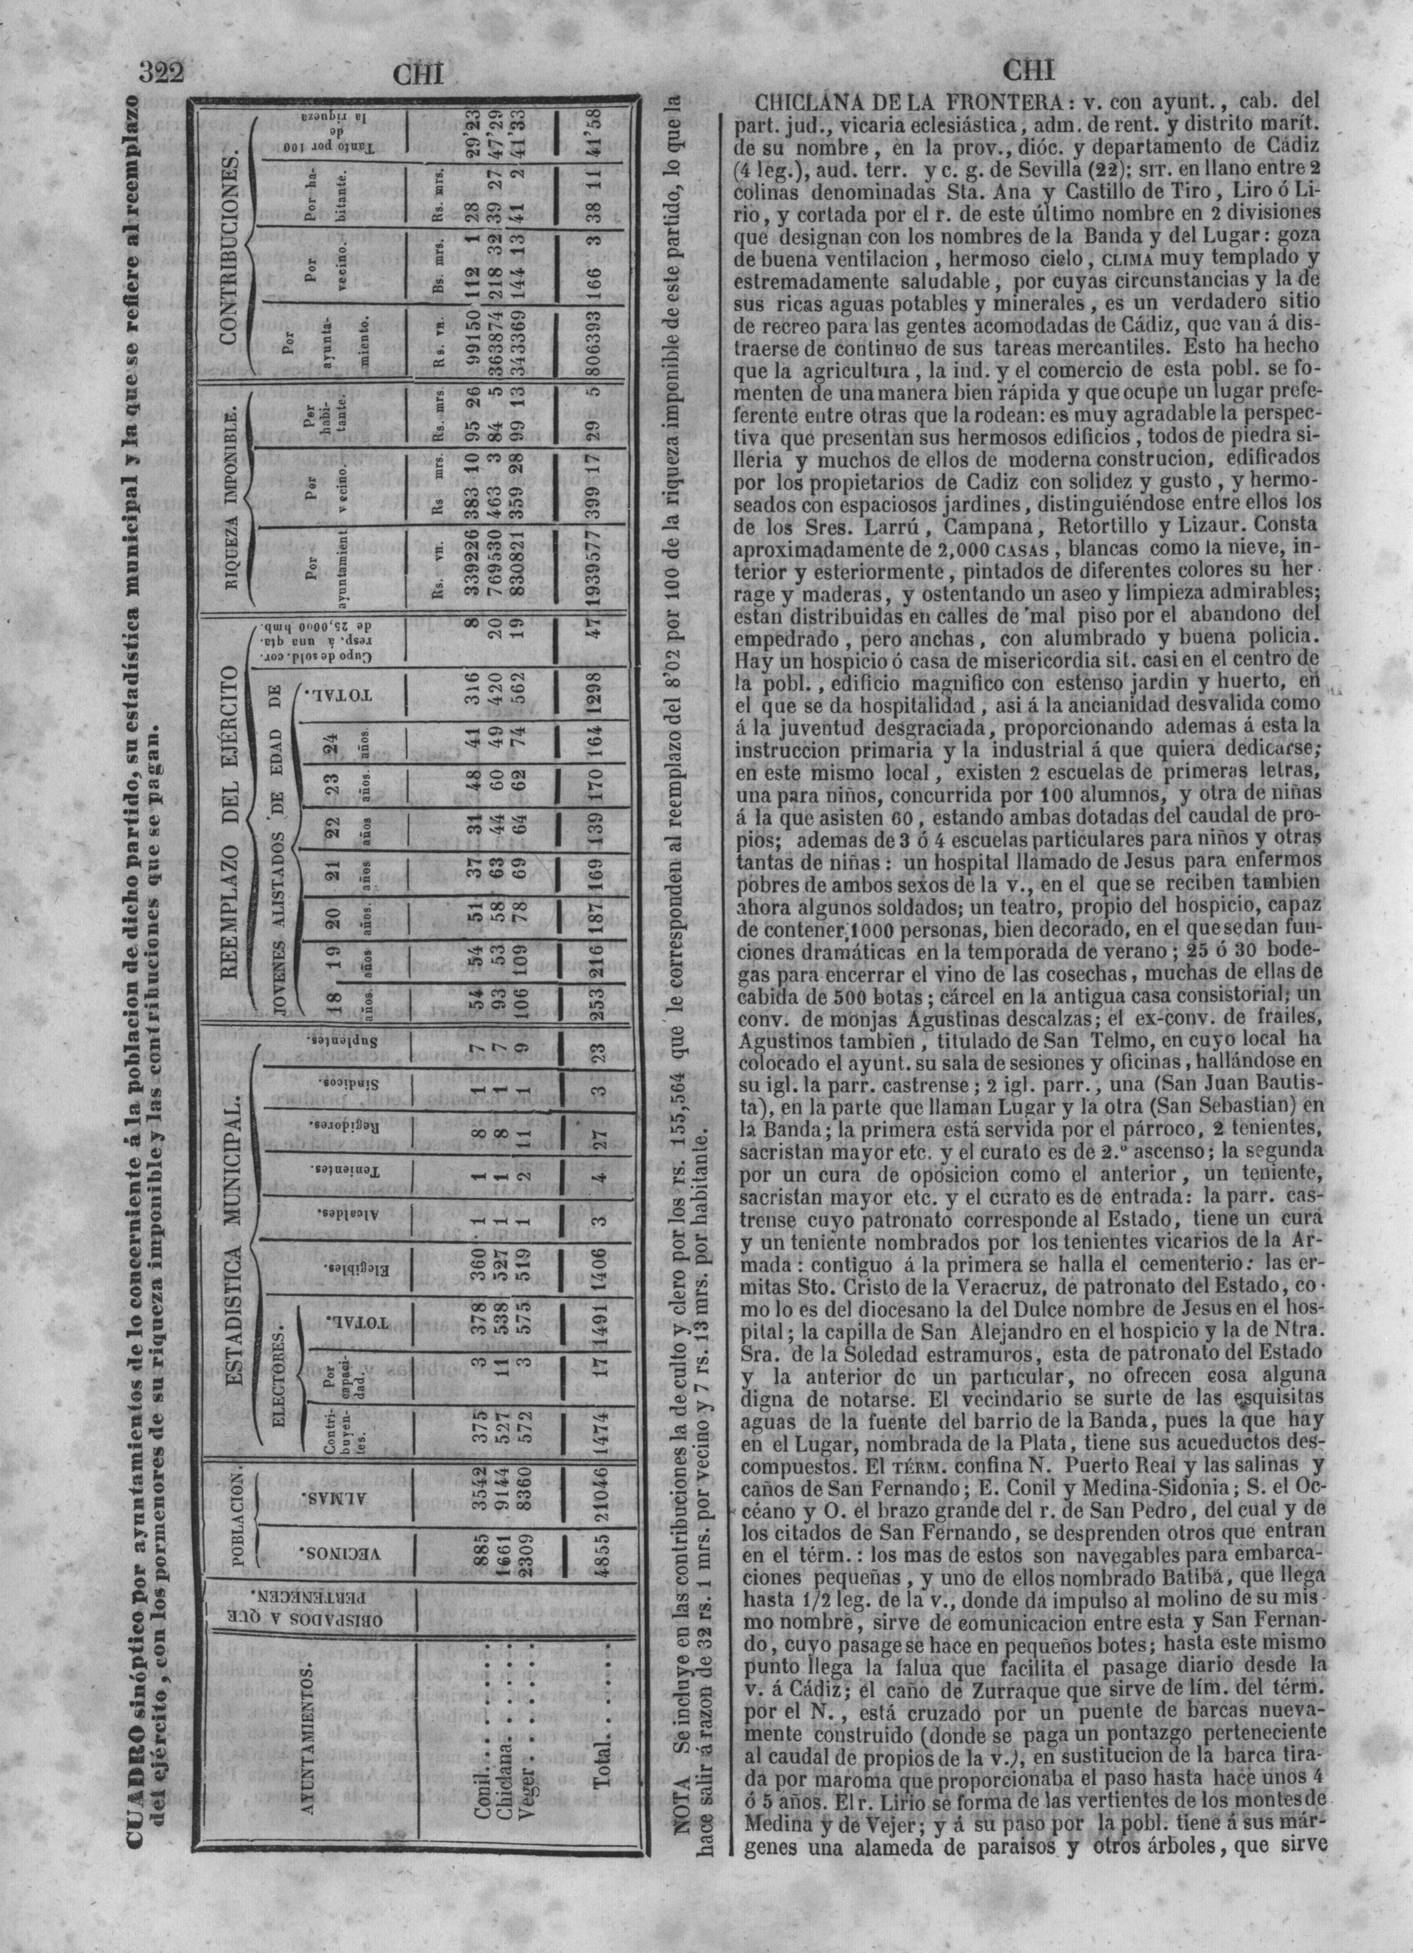 322
CHI
CHI
CUADRO sinóptico por ayuntamientos de lo concerniente á la poblacion de dicho partido, su estadística municipal y la que se refiere al reemplazo
del ejército, con los pormenores de su riqueza imponible y las contribuciones que se pagan.
AYUNTAMIENTOS.
OBISPADOS A QUE PERTENECEN.
POBLACION.
VECINOS.
ALMAS.
ESTADISTICA MUNICIPAL.
ELECTORES.
Contribuyentes.
Por capacidad.
TOTAL.
Elegibles.
Alcaldes.
Tenientes.
Regidores.
Síndicos.
Suplentes.
REEMPLAZO DEL EJÉRCITO
JOVENES ALISTADOS DE EDAD DE
18 años.
19 años
20 años.
21 años
22 años
23 años.
24 años.
TOTAL.
Cupo de sold. corresp. á una qta. de 25,000 hmb.
RIQUEZA IMPONIBLE.
Por ayuntamient
Por vecino.
Por habitante.
CONTRIBUCIONES.
Por ayuntamiento.
Por vecino.
Por habitante.
Tanto por 100 de la riqueza
Rs. vn. Rs mrs. Rs. mrs Rs. vn. Rs. mrs. Rs. mrs.
Conil. 885 3542 375 3 378 360 1 1 8 1 7 54 54 51 37 31 48 41 316 8 339226 383 10 95 26 99150 112 1 28 29'23
Chiclana. 1661 9144 527 11 538 527 1 1 8 1 7 93 53 58 63 44 60 49 420 20 769530 463 3 84 5 363874 218 32 39 27 47'29
Veger 2309 8360 572 3 575 519 1 2 11 1 9 106 109 78 69 64 62 74 562 19 830821 359 28 99 13 343369 144 13 41 2 41'33
Total. 4855 21046 1474 17 1491 1406 3 4 27 3 23 253 216 187 169 139 170 164 1298 47 1939577 399 17 29 5 806393 166 3 38 11 41'58
NOTA Se incluye en las contribuciones la de culto y clero por los rs. 155,564 que le corresponden al reemplazo del 8'02 por 100 de la riqueza imponible de este partido, lo que la
hace salir á razon de 32 rs. 1 mrs. por vecino y 7 rs. 13 mrs. por habitante.
CHICLANA DE LA FRONTERA: v. con ayunt., cab. del
part. jud., vicaria eclesiástica, adm. de rent. y distrito marít.
de su nombre, en la prov., dióc. y departamento de Cádiz
(4 leg.), aud. terr. y c. g. de Sevilla (22): SIT. en llano entre 2
colinas denominadas Sta. Ana y Castillo de Tiro, Liro ó Li-
rio, y cortada por el r. de este último nombre en 2 divisiones
que designan con los nombres de la Banda y del Lugar: goza
de buena ventilacion, hermoso cielo, CLIMA muy templado y
estremadamente saludable, por cuyas circunstancias y la de
sus ricas aguas potables y minerales, es un verdadero sitio
de recreo para las gentes acomodadas de Cádiz, que van á dis-
traerse de continuo de sus tareas mercantiles. Esto ha hecho
que la agricultura, la ind. y el comercio de esta pobl. se fo-
menten de una manera bien rápida y que ocupe un lugar prefe-
ferente entre otras que la rodean: es muy agradable la perspec-
tiva que presentan sus hermosos edificios, todos de piedra si-
lleria y muchos de ellos de moderna construcion, edificados
por los propietarios de Cadiz con solidez y gusto, y hermo-
seados con espaciosos jardines, distinguiéndose entre ellos los
de los Sres. Larrú, Campana, Retortillo y Lizaur. Consta
aproximadamente de 2,000 CASAS, blancas como la nieve, in-
terior y esteriormente, pintados de diferentes colores su her-
rage y maderas, y ostentando un aseo y limpieza admirables;
estan distribuidas en calles de mal piso por el abandono del
empedrado, pero anchas, con alumbrado y buena policia.
Hay un hospicio ó casa de misericordia sit. casi en el centro de
la pobl., edificio magnifico con estenso jardin y huerto, en
el que se da hospitalidad, asi á la ancianidad desvalida como
á la juventud desgraciada, proporcionando ademas á esta la
instruccion primaria y la industrial á que quiera dedicarse;
en este mismo local, existen 2 escuelas de primeras letras,
una para niños, concurrida por 100 alumnos, y otra de niñas
á la que asisten 60, estando ambas dotadas del caudal de pro-
pios; ademas de 3 ó 4 escuelas particulares para niños y otras
tantas de niñas: un hospital llamado de Jesus para enfermos
pobres de ambos sexos de la v., en el que se reciben tambien
ahora algunos soldados; un teatro, propio del hospicio, capaz
de contener 1000 personas, bien decorado, en el que se dan fun-
ciones dramáticas en la temporada de verano; 25 ó 30 bode-
gas para encerrar el vino de las cosechas, muchas de ellas de
cabida de 500 botas; cárcel en la antigua casa consistorial; un
conv. de monjas Agustinas descalzas; el ex-conv. de frailes,
Agustinos tambien, titulado de San Telmo, en cuyo local ha
colocado el ayunt. su sala de sesiones y oficinas, hallándose en
su igl. la parr. castrense; 2 igl. parr., una (San Juan Bautis-
ta), en la parte que llaman Lugar y la otra (San Sebastian) en
la Banda; la primera está servida por el párroco, 2 tenientes,
sacristan mayor etc. y el curato es de 2.º ascenso; la segunda
por un cura de oposicion como el anterior, un teniente,
sacristan mayor etc. y el curato es de entrada: la parr. cas-
trense cuyo patronato corresponde al Estado, tiene un cura
y un teniente nombrados por los tenientes vicarios de la Ar-
mada: contiguo á la primera se halla el cementerio: las er-
mitas Sto. Cristo de la Veracruz, de patronato del Estado, co-
mo lo es del diocesano la del Dulce nombre de Jesus en el hos-
pital; la capilla de San Alejandro en el hospicio y la de Ntra.
Sra. de la Soledad estramuros, esta de patronato del Estado
y la anterior de un particular, no ofrecen cosa alguna
digna de notarse. El vecindario se surte de las esquisitas
aguas de la fuente del barrio de la Banda, pues la que hay
en el Lugar, nombrada de la Plata, tiene sus acueductos des-
compuestos. El TÉRM. confina N. Puerto Real y las salinas y
caños de San Fernando; E. Conil y Medina-Sidonia; S. el Oc-
céano y O. el brazo grande del r. de San Pedro, del cual y de
los citados de San Fernando, se desprenden otros que entran
en el térm.: los mas de estos son navegables para embarca-
ciones pequeñas, y uno de ellos nombrado Batiba, que llega
hasta 1/2 leg. de la v., donde da impulso al molino de su mis-
mo nombre, sirve de comunicacion entre esta y San Fernan-
do, cuyo pasage se hace en pequeños botes; hasta este mismo
punto llega la falua que facilita el pasage diario desde la
v. á Cádiz; el caño de Zurraque que sirve de lím. del térm.
por el N., está cruzado por un puente de barcas nueva-
mente construido (donde se paga un pontazgo perteneciente
al caudal de propios de la v.), en sustitucion de la barca tira-
da por maroma que proporcionaba el paso hasta hace unos 4
ó 5 años. El r. Lirio se forma de las vertientes de los montes de
Medina y de Vejer; y á su paso por la pobl. tiene á sus már-
genes una alameda de paraisos y otros árboles, que sirve